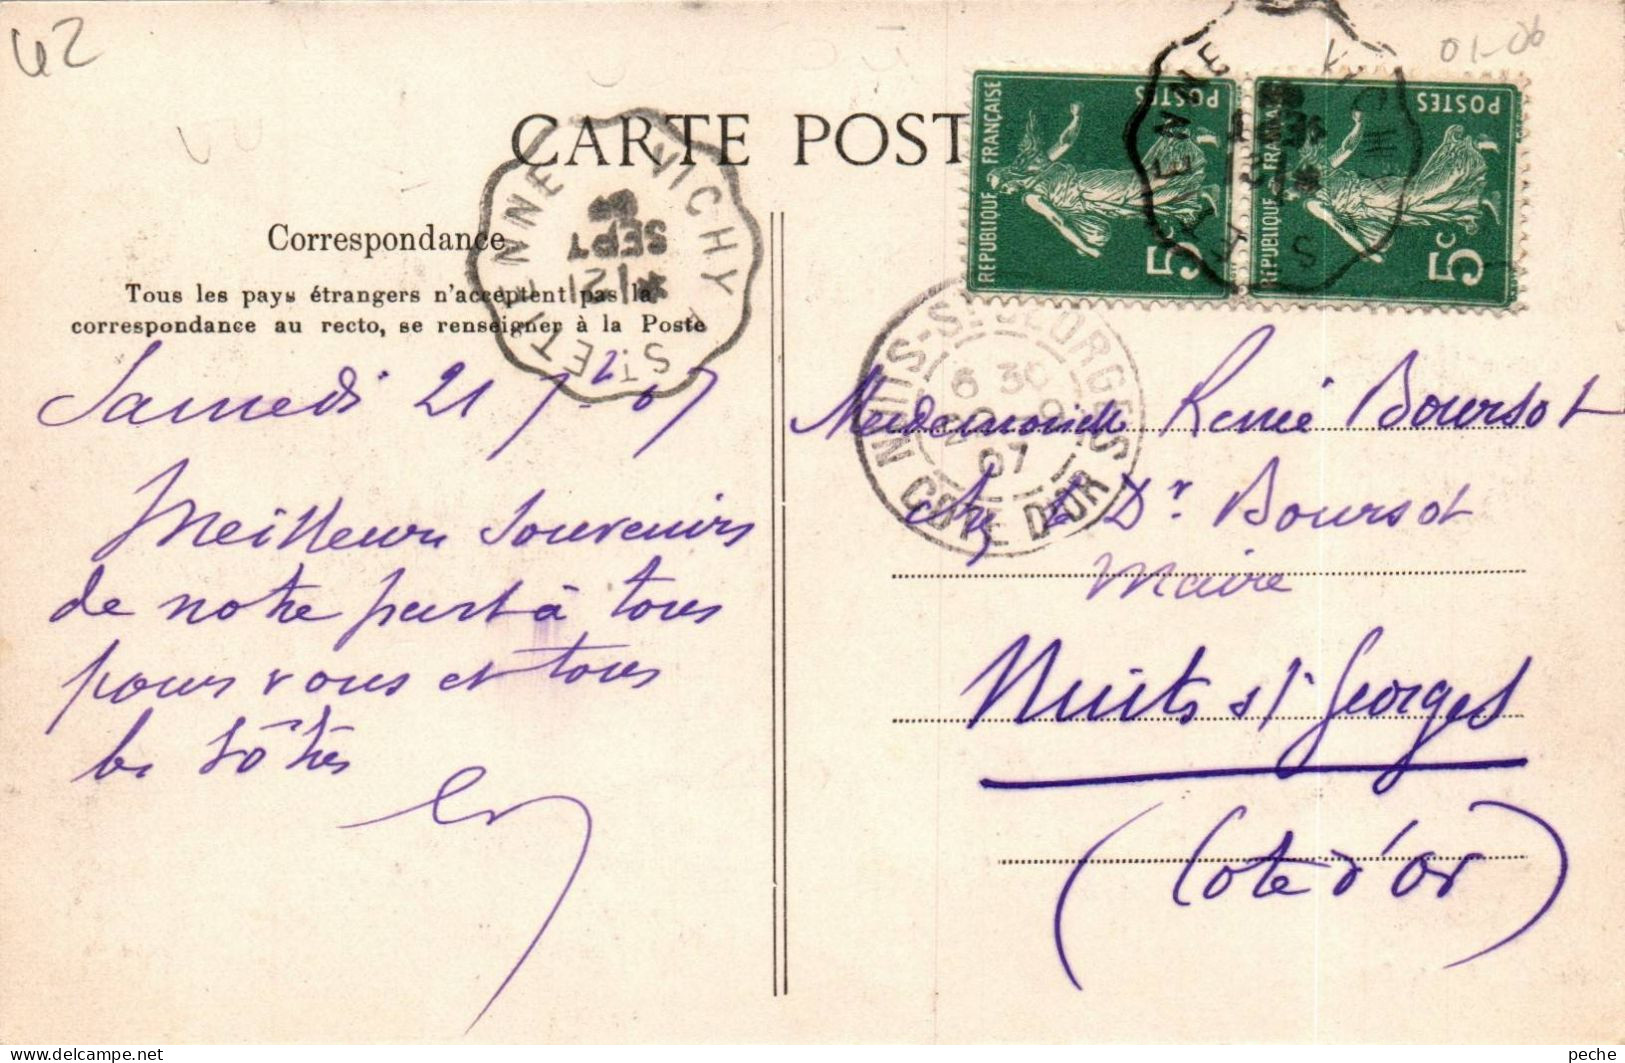 42
01-06
CARTE POST
Correspondance
Tous les pays étrangers n'acceptent pas la
correspondance au recto, se renseigner à la Poste
VICHY A ST ETIENNE
21
SEPT
RÉPUBLIQUE FRANÇAISE
POSTES
5c
RÉPUBLIQUE FRANÇAISE
POSTES
5c
VICHY A ST ETIENNE
NUITS-ST GEORGES
6 30
07
COTE D'OR
Samedi 21 7bre 07
Meilleurs souvenirs
de notre part à tous
pour vous et tous
les vôtres
Mademoiselle Renée Boursot
chez le Dr Boursot
Maire
Nuits st Georges
(Cote d'or)
peche